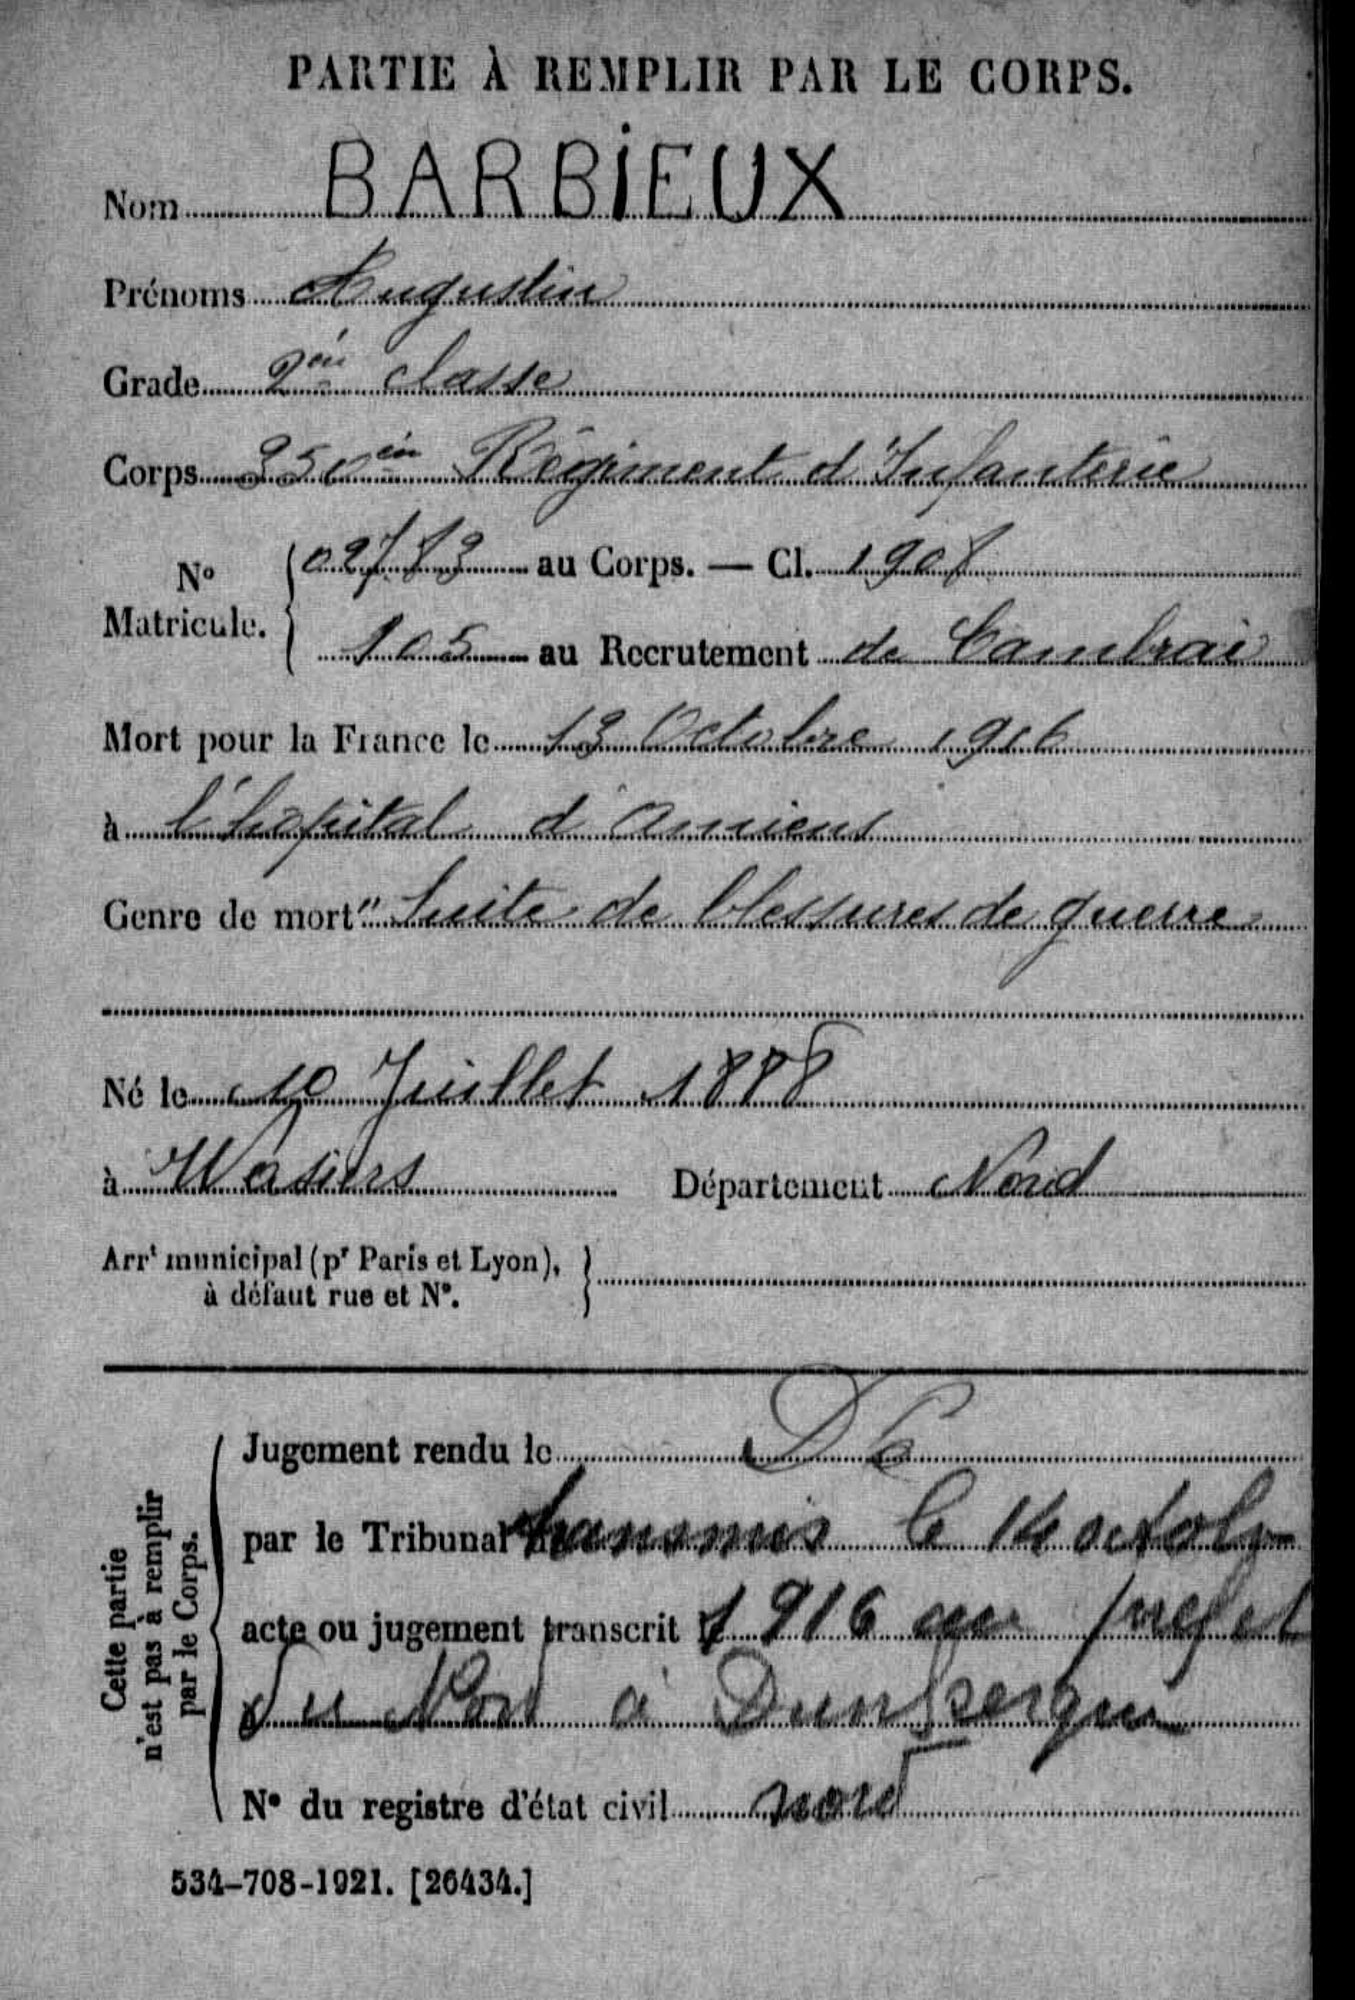 PARTIE À REMPLIR PAR LE CORPS.
Nom BARBIEUX
Prénoms Augustin
Grade 2èm classe
Corps 350èm Régiment d'Infanterie
No Matricule. 02783 au Corps. — Cl. 1908
105 au Recrutement de Cambrai
Mort pour la France le 13 Octobre 1916
à l'hopital d'Amiens
Genre de mort "Suite de blessures de guerre
Né le 10 Juillet 1888
à Wasiers Département Nord
Arrt municipal (pr Paris et Lyon),
à défaut rue et No.
Cette partie
n'est pas à remplir
par le Corps.
Jugement rendu le
par le Tribunal transmis le 14 octobre
acte ou jugement transcrit le 1916 au prefet
du Nord à Dunkerque
No du registre d'état civil nord
534-708-1921. [26434.]